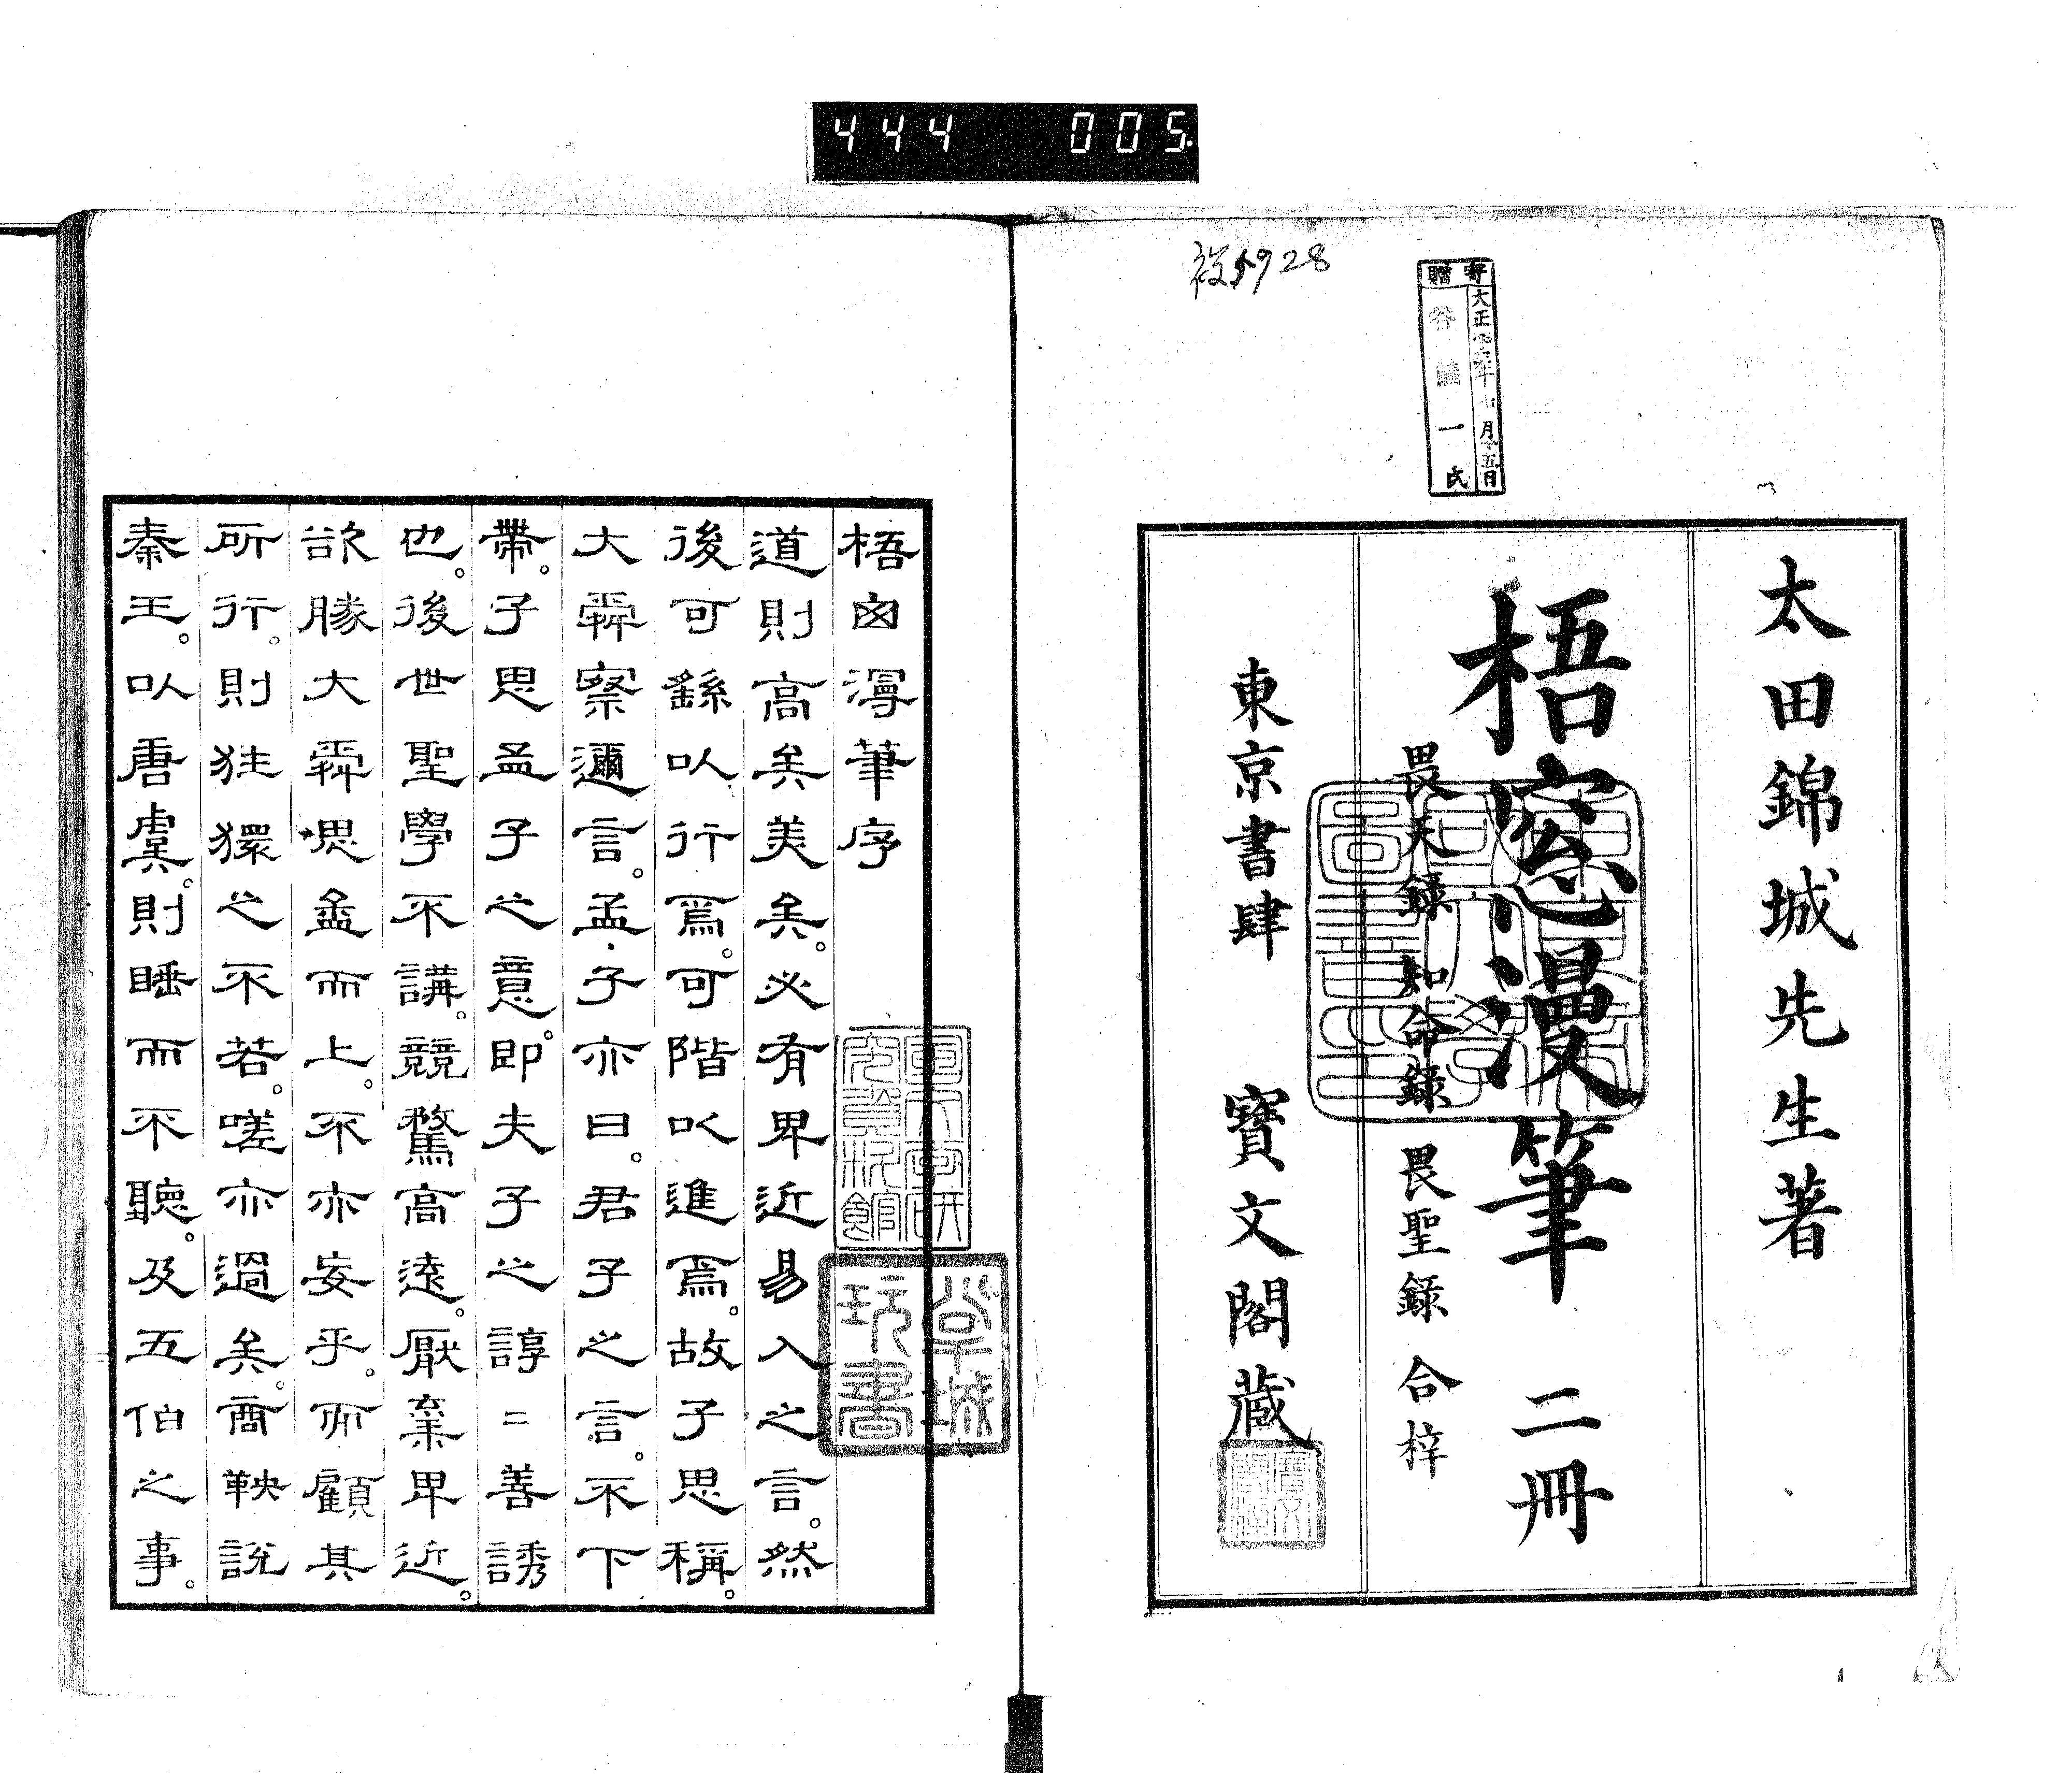 444 005.
5928
寄贈
大正
年
月十五日
一氏
太田錦城先生著
梧窓漫筆 二冊
畏天錄 知命錄 畏聖錄 合梓
東京書肆 寶文閣藏
梧囱漫筆序
道則高矣美矣。必有卑近易入之言。然
後可繇以行焉。可階以進焉。故子思稱。
大舜察邇言。孟子亦曰。君子之言。不下
帶。子思孟子之意。即夫子之諄二善誘
也。後世聖學不講。競騖高遠。厭棄卑近。
欲勝大舜思孟而上。不亦妄乎。而顧其
所行。則狂獧之不若。嗟亦過矣。商鞅說
秦王。以唐虞。則睡而不聽。及五伯之事。